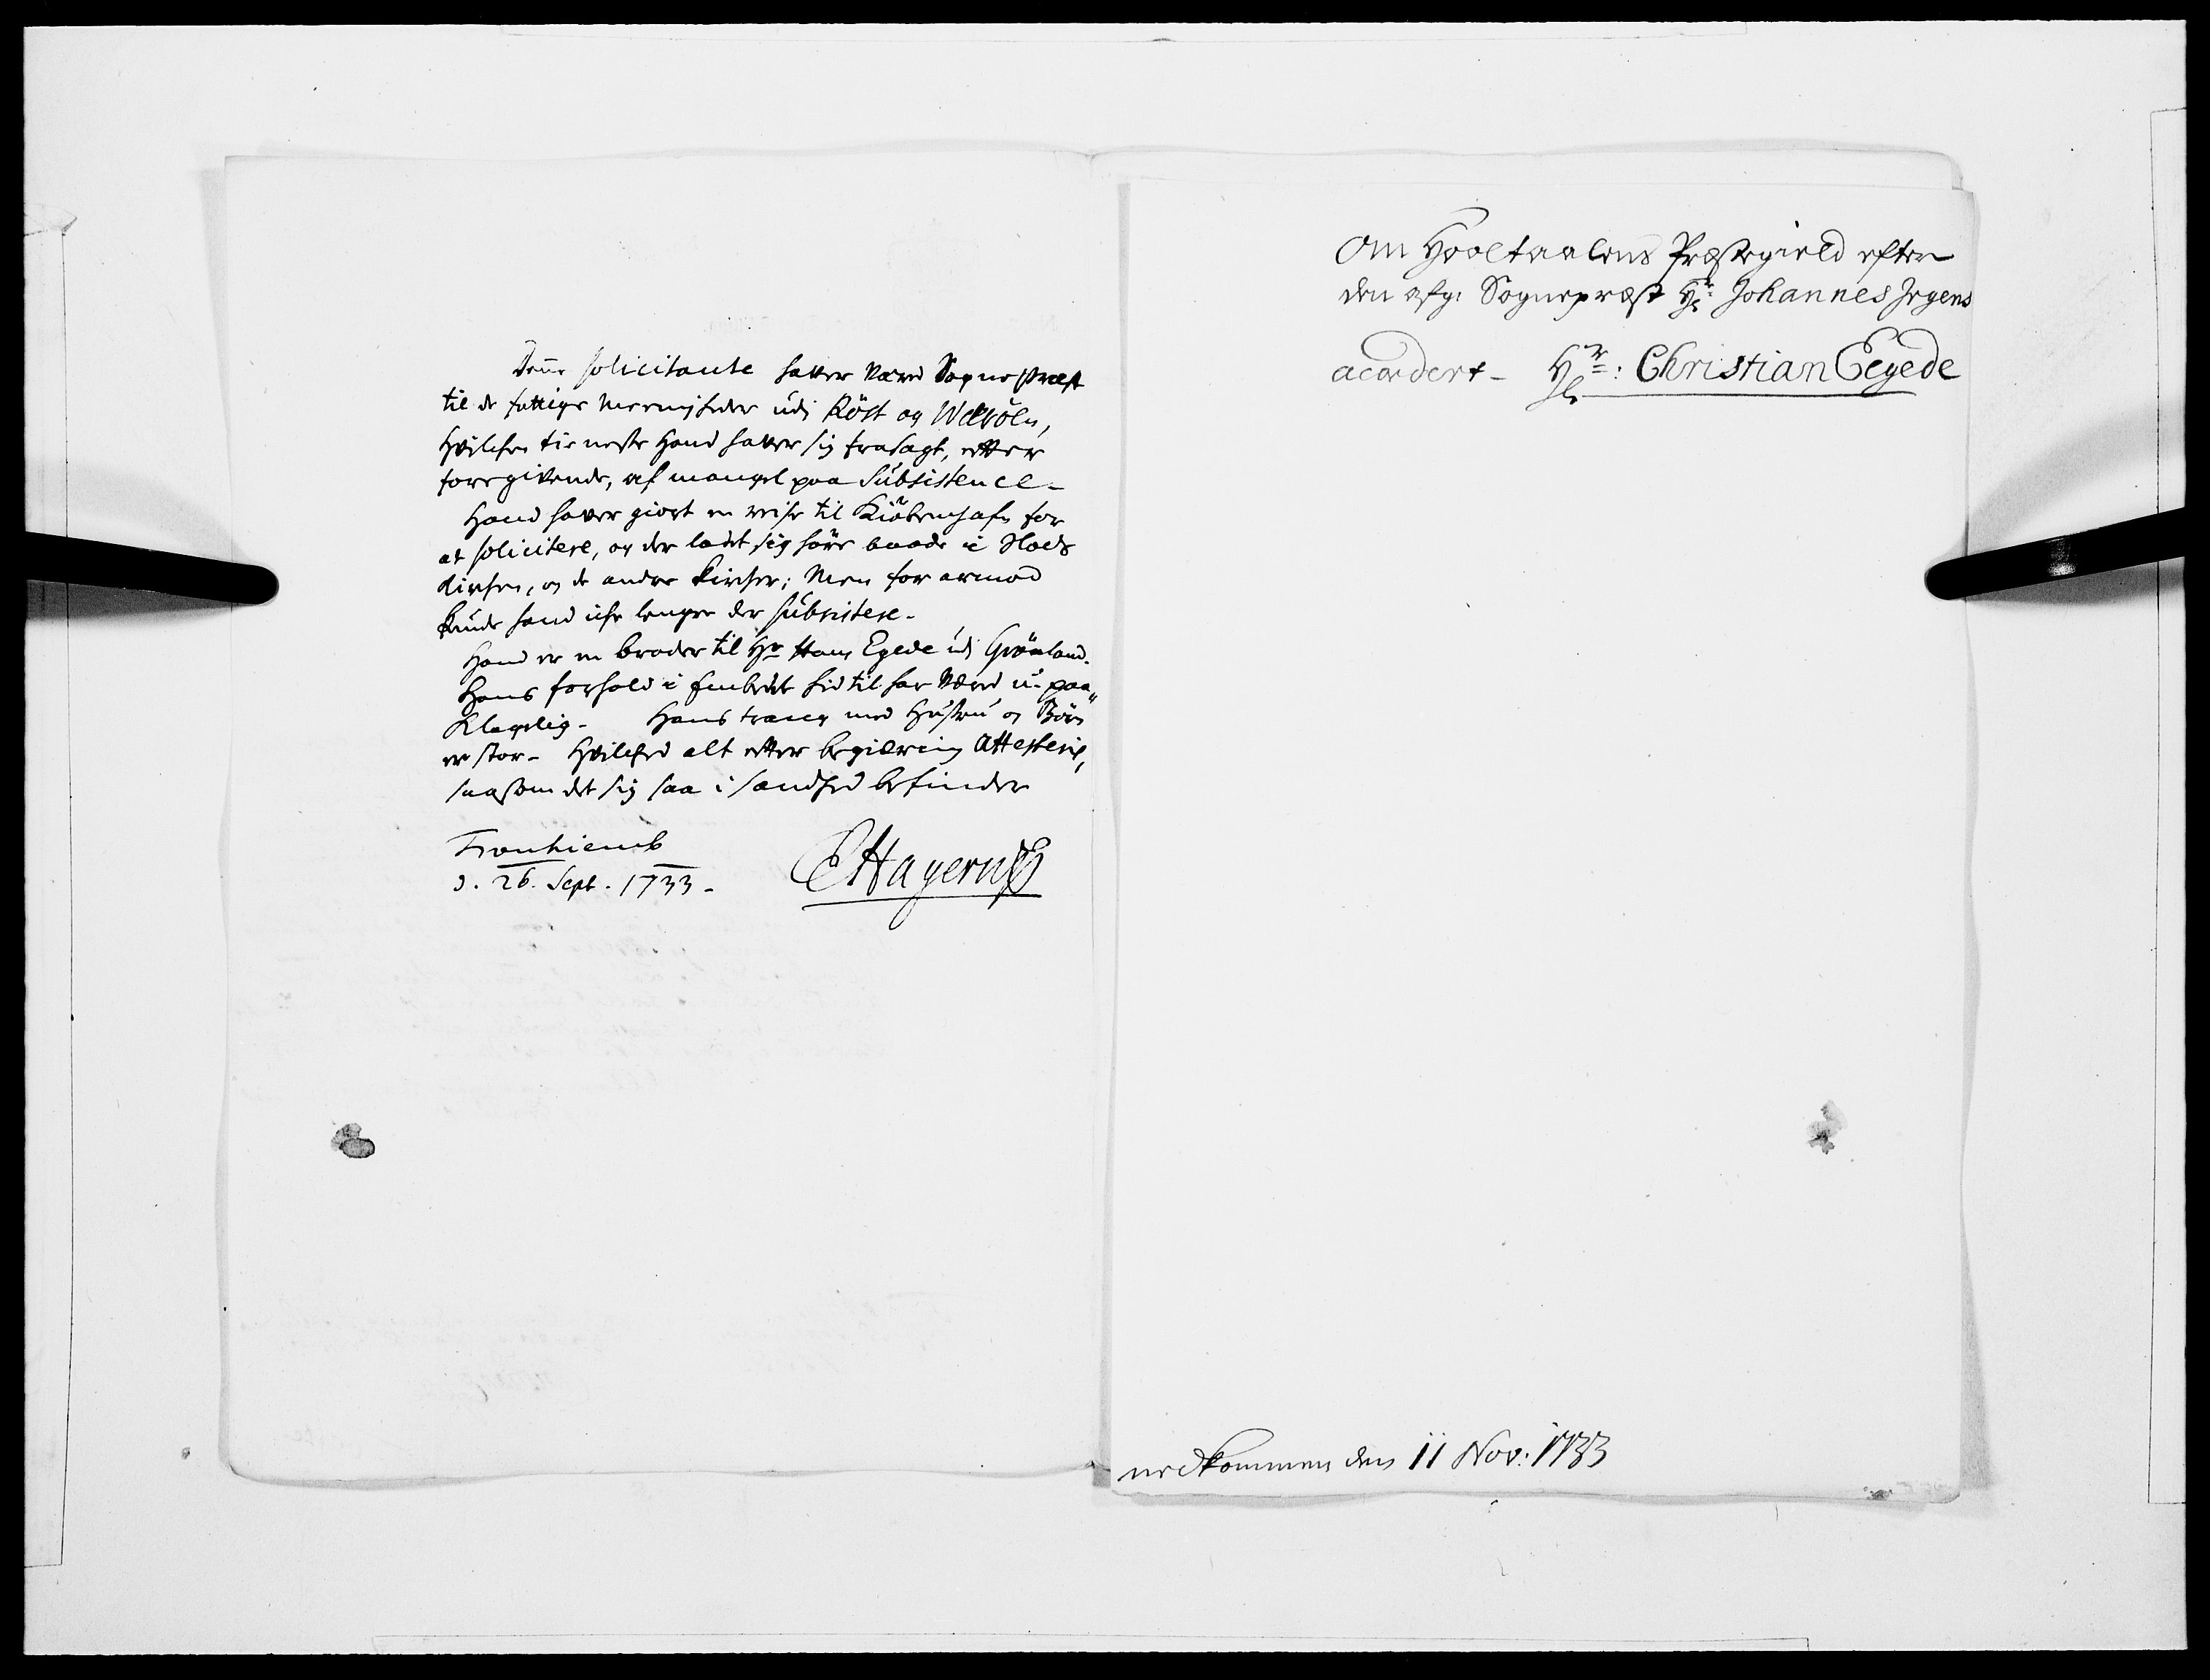 Denne solicitante haver været Sogneprest
til de fattige Meenigheder udi Röst og Weröen,
Hvilchen tieneste Hand haver sig frasagt, efter
foregivende, af mangel paa Subsistence-
Hand haver giort en reise til Kiöbenhafn for
at solicitere, og der ladet sig höre baade i Slods
kirchen, og de andre kircher; Men for armod
kunde hand iche lenger der subsistere-
Hand er en broder til Hr Hans Egede udi Grönland.
Hans forhold i Embedet hid til har Været u-paa"
klagelig- Hans trang med Hustru og Börn
er stor- Hvilchet alt efter begiering Attesteris,
saasom det sig saa i sandhed befinder
Tronhiemb
d. 26. Sept. 1733-
EHagerup
Om Hooltaalens Præstegield efter
den afg: Sognepræst Hr: Johannes Irgens
acordert- Hr: Christian Eegede
nedkommen den 11 Nov: 1733